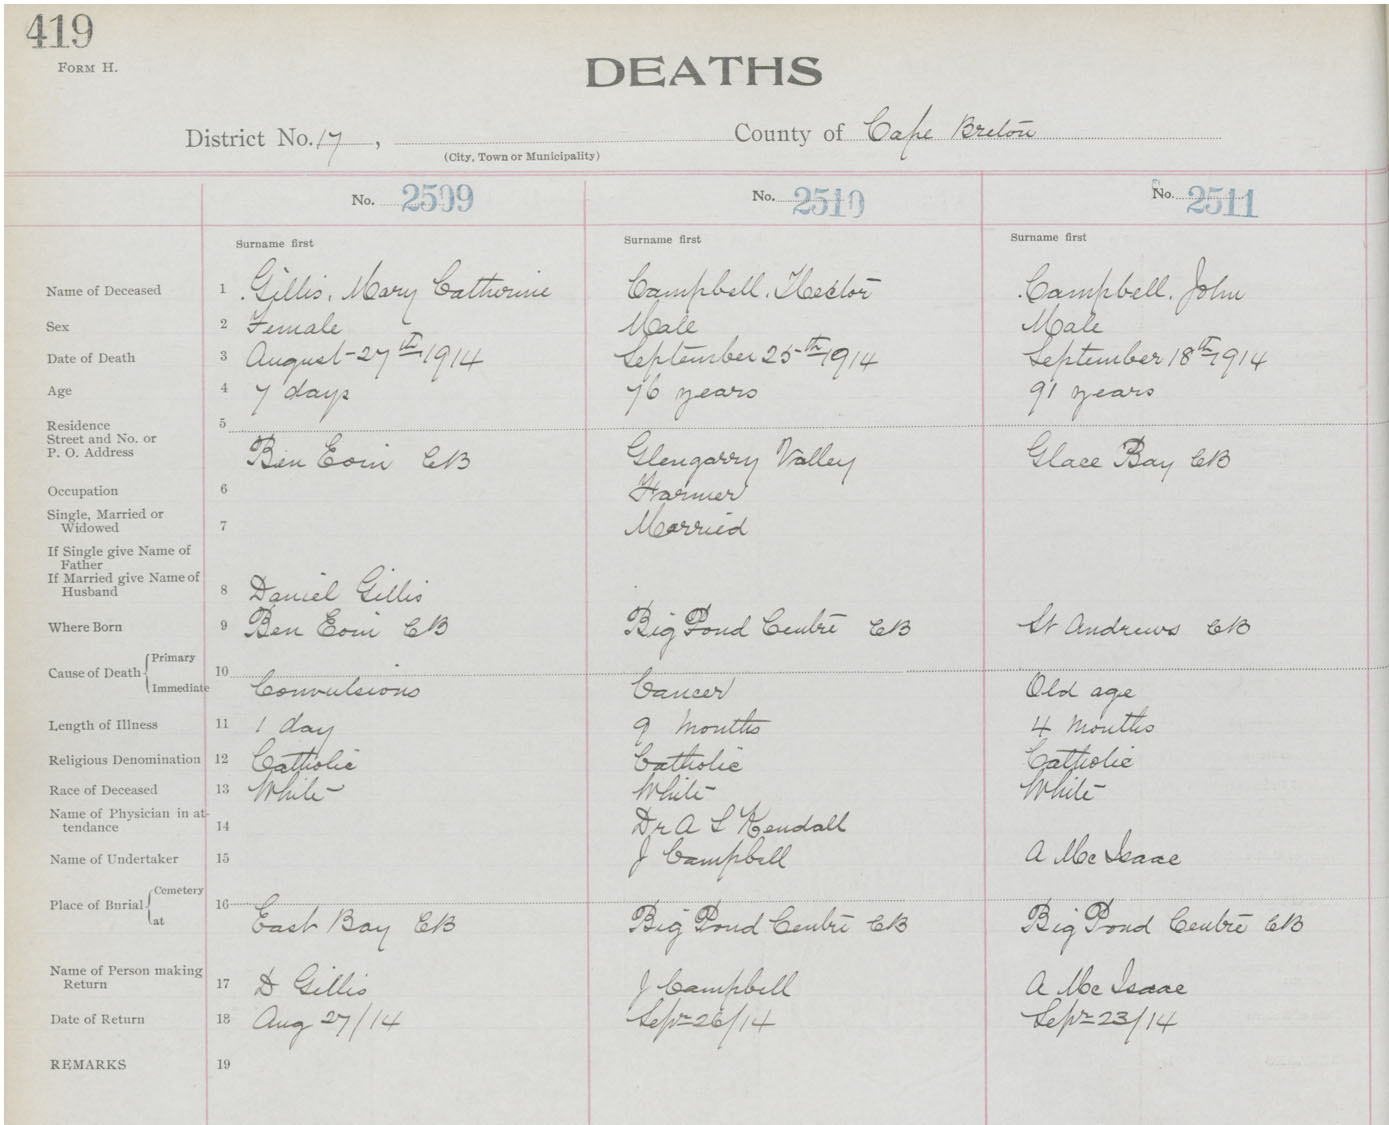 419
FORM H.
DEATHS
District No. 17, County of Cape Breton
(City, Town or Municipality)
No. 2509 No. 2510 No. 2511
Surname first Surname first Surname first
Name of Deceased 1 Gillis, Mary Catherine Campbell, Hector Campbell, John
Sex 2 Female Male Male
Date of Death 3 August 27th 1914 September 25th 1914 September 18th 1914
Age 4 7 days 76 years 91 years
Residence 5
Street and No. or
P. O. Address Ben Eoin CB Glengarry Valley Glace Bay CB
Occupation 6 Farmer
Single, Married or
Widowed 7 Married
If Single give Name of
Father
If Married give Name of
Husband 8 Daniel Gillis
Where Born 9 Ben Eoin CB Big Pond Centre CB St Andrews CB
Cause of Death Primary 10
Immediate Convulsions Cancer Old age
Length of Illness 11 1 day 9 months 4 months
Religious Denomination 12 Catholic Catholic Catholic
Race of Deceased 13 White White White
Name of Physician in at-
tendance 14 Dr A S Kendall
Name of Undertaker 15 J Campbell A Mc Isaac
Place of Burial Cemetery 16
at East Bay CB Big Pond Centre CB Big Pond Centre CB
Name of Person making
Return 17 D Gillis J Campbell A Mc Isaac
Date of Return 18 Aug 27/14 Sept 26/14 Sept 23/14
REMARKS 19